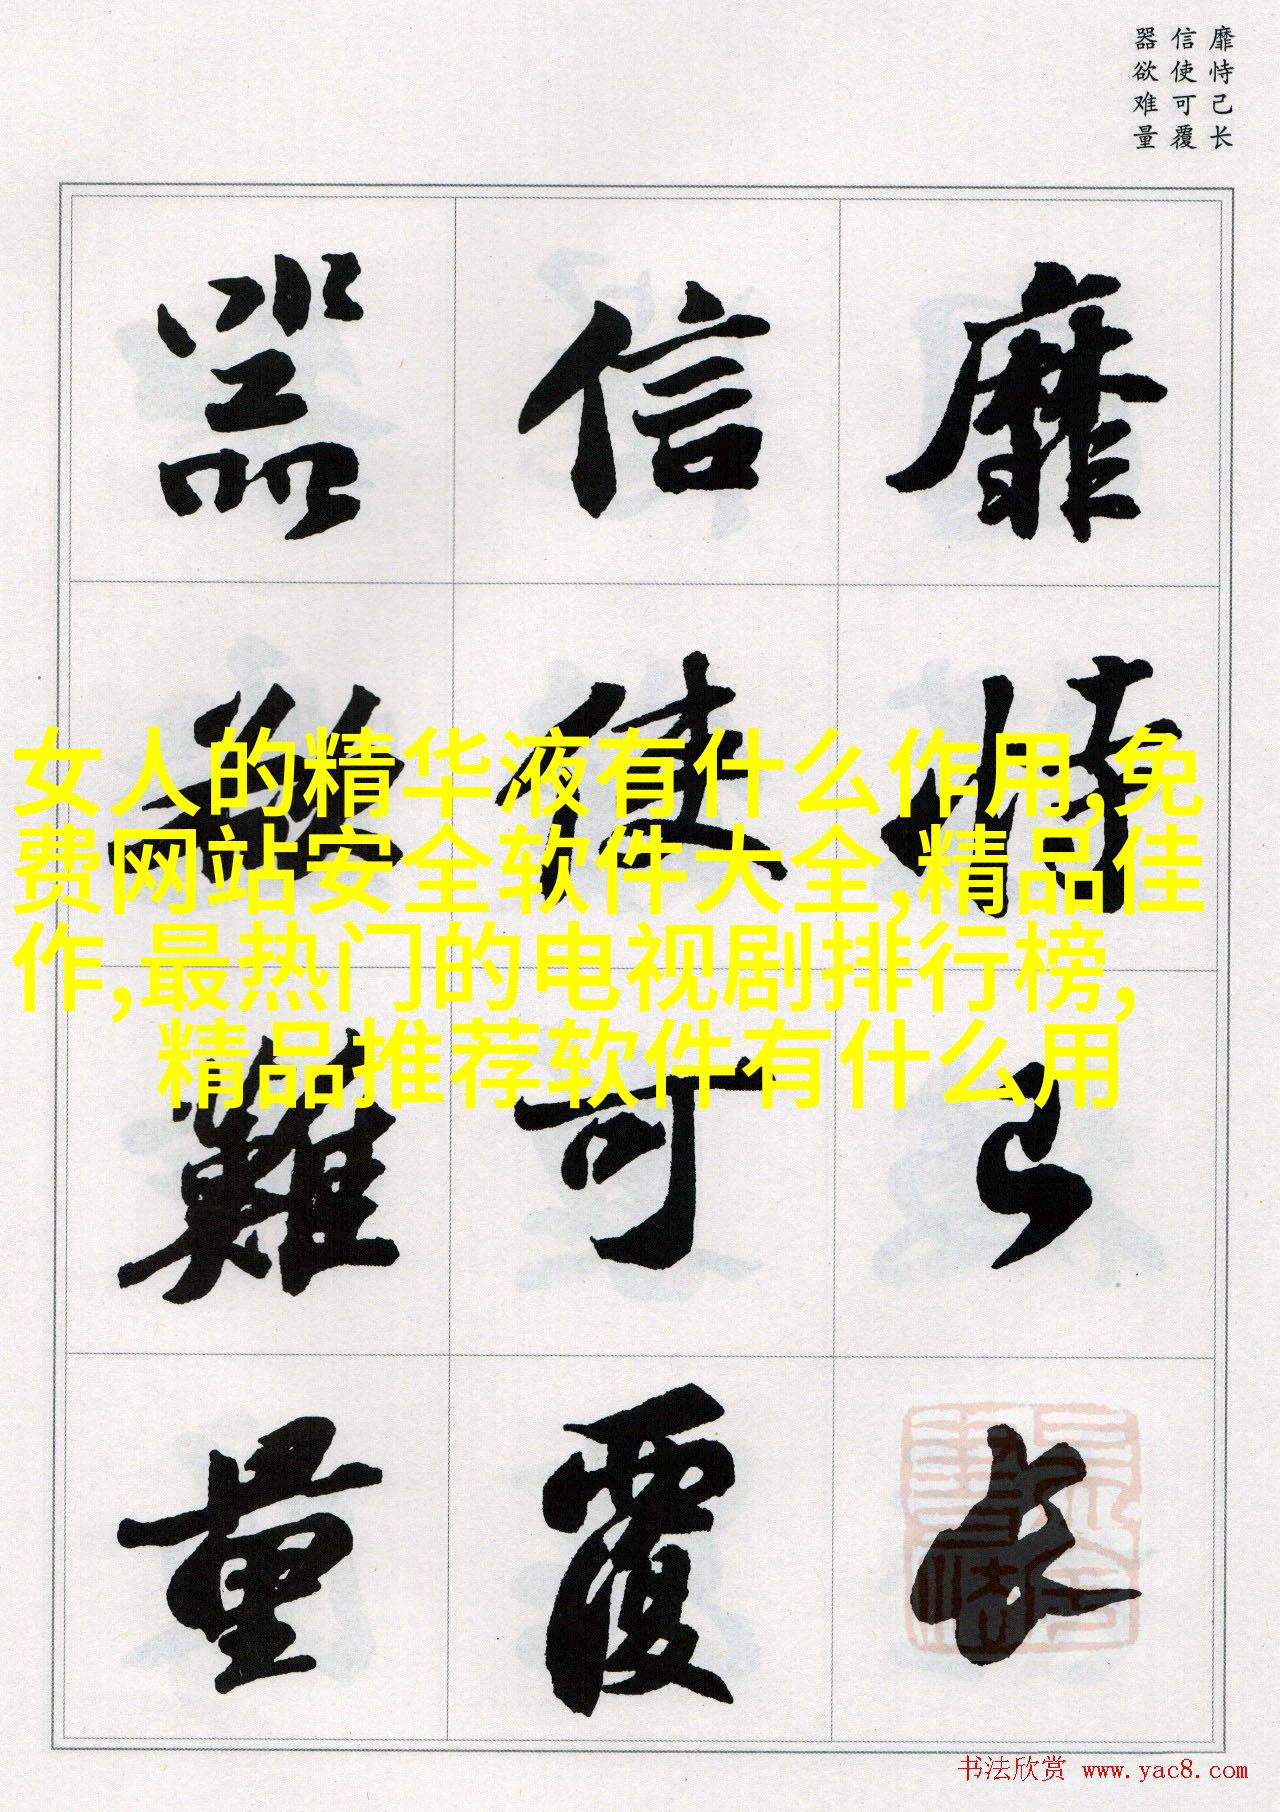 靡恃己长
信使可覆
器欲难量
靡恃己长
信使可覆
器欲難量
女人的精华液有什么作用,免
费网站安全软件大全,精品佳
作,最热门的电视剧排行榜,
精品推荐软件有什么用
书法欣赏 www.yac8.com